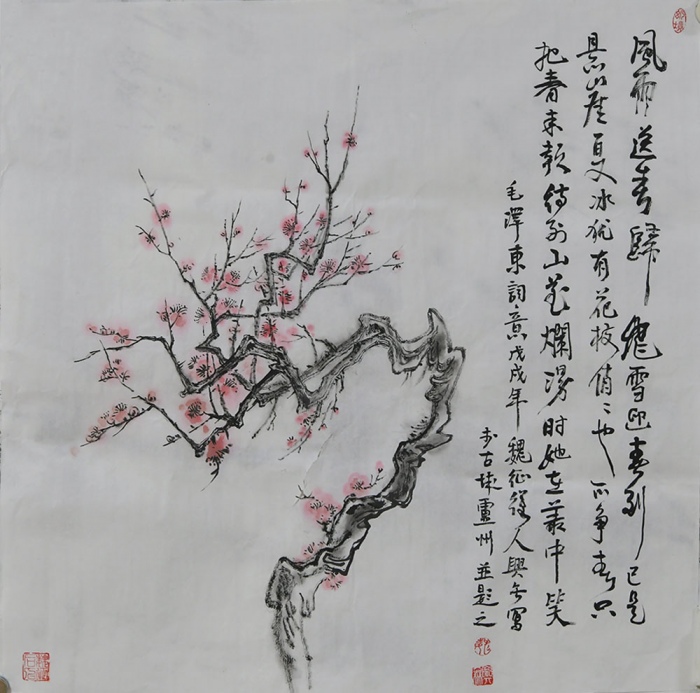 風雨送春歸飛雪迎春到已是
悬崖百丈冰猶有花枝俏〻也不爭春只
把春來報待到山花爛漫時她在叢中笑
毛澤東詞意戊戌年魏征後人興寫
古城盧州並題之